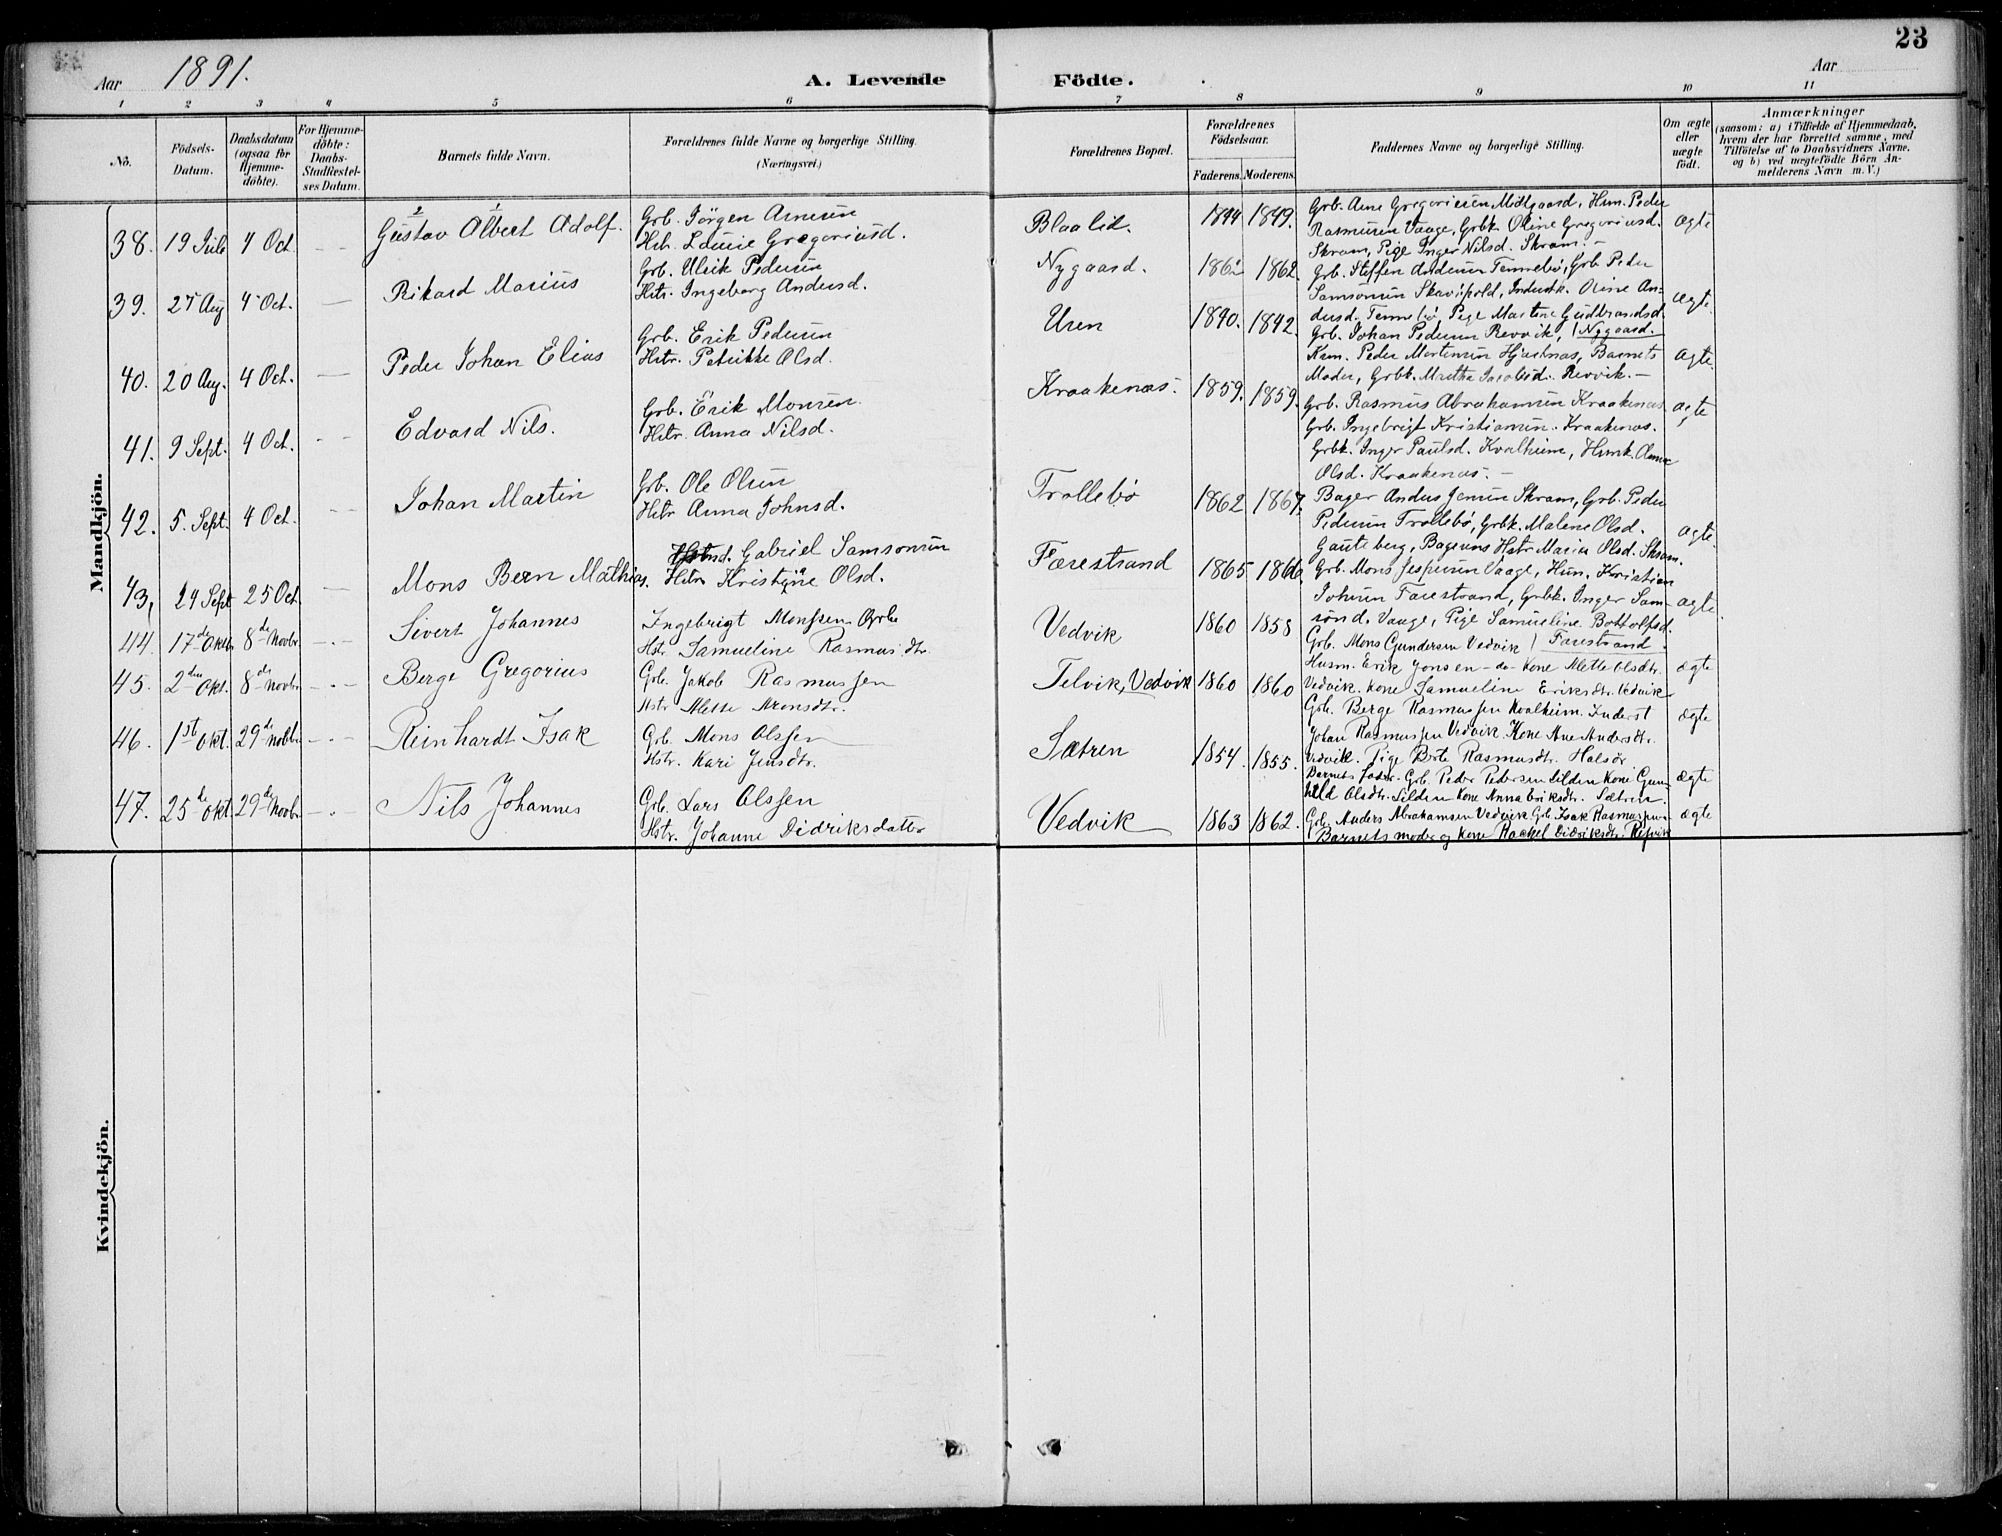 23
Aar 1891.
A. Levende Födte.
Aar
1 2 3 4 5 6 7 8 9 10 11
No.
Födsels-
Datum.
Daabsdatum
(ogsaa for
Hjemme-
döbte).
For Hjemme-
döbte:
Daabs-
Stadfæstel-
ses Datum.
Barnets fulde Navn.
Forældrenes fulde Navne og borgerlige Stilling.
(Næringsvei.)
Forældrenes Bopæl.
Forældrenes
Födselsaar.
Faderens. Moderens.
Faddernes Navne og borgerlige Stilling.
Om ægte
eller
uægte
født.
Anmærkninger
(saasom: a) i Tilfælde af Hjemmedaab,
hvem der har forrettet samme, med
Tilföielse af to Daabsvidners Navne,
og b) ved uægtefödte Börn An-
melderens Navn m. V.)
Mandkjön.
38. 19 Juli 4 Oct.
2 1
Gustav Albert Adolf.
Grb. Jörgen Arnesen
Hstr. Lovise Gregoriusd.
Blaalid. 1844 1849.
Grb. Arne Gregoriusen Midtgaard, Husm. Peder
Rasmusen Vaage, Grbk. Oline Gregoriusd.
Skram, Pige Inger Nilsd. Skram. -
ægte
39. 27 Aug 4 Oct.
Rikard Marius
Grb. Ulrik Pedersen
Hstr. Ingeborg Andersd.
Nygaard. 1862.
Grb. Steffen Andersen Tennebö, Grb. Peder
Samsonsen Skavöpold, Inderstk. Oline An-
dersd. Tennebö, Pige Martine Gudbrandsd.
Nygaard.
ægte
40. 20 Aug. 4 Oct.
Peder Johan Elias
Grb. Erik Pedersen
Hstr. Petrikke Olsd.
Uren 1840. 1842.
Grb. Johan Pedersen Revvik,
Husm. Peder Mortensen Hjertnæs, Barnets
Moder, Grbk. Mrtha Jacobsd. Revvik. -
ægte.
41. 9 Sept. 4 Oct.
Edvard Nils.
Grb. Erik Monsen.
Hstr. Anna Nilsd.
Kraakenæs. 1859. 1859.
Grb. Rasmus Abrahamsen Kraakenæs
Grb. Ingebrigt Kristiansen Kraakenæs.
Grbk. Inger Paulsd. Kvalheim, Husmk. Anne
Olsd. Kraakenæs. -
ægte
42. 5. Sept. 4 Oct.
Johan Martin
Grb. Ole Olsen
Hstr Anna Johnsd.
Trollebö 1862 1867.
Bager Anders Jensen Skram, Grb. Peder
Pedersen Trollebö, Grbk. Malene Olsd.
Gauteberg, Bagerens Hstr Maria Olsd. Skram.
ægte.
43, 24 Sept 25 Oct.
Mons Bern Mathias.
Gabriel Samsonsen
Hstr Kristine Olsd.
Færestrand 1865 1866
Grb. Mons Jespersen Vaage, Husm. Kristian
Johnsen Færestrand, Grbk. Inger Sam-
sönd. Vaage, Pige Samueline Bottolfsd.
Færestrand.
ægte
44. 17de Oktb. 8de Novbr.
Sivert Johannes
Ingebrigt Monssen Grbr
Hstr Samueline Rasmusdtr.
Vedvik 1860 1858
Grb. Mons Gundersen Vedvik
Husm. Erik Jonsen - do - Kone Mette Olsdtr.
Vedvik. Kone Samueline Eriksdtr. Vedvik
ægte
45. 2den Okt. 8de Novbr.
Berge Gregorius
Grb. Jakob Rasmussen
Hstr Mette Aronsdtr.
Telvik, Vedvik 1860 1860
Grb. Berge Rasmussen Kvalheim. Inderst
Johan Rasmussen Vedvik. Kone Ane Andersdtr.
Vedvik. Pige Brite Rasmusdtr. Halsör
ægte
46. 1st Okt. 29de Novbr.
Reinhardt Isak
Grb. Mons Olssen
Hstr. Kari Jensdtr.
Sætren 1854. 1855.
Barnets fader. Grb. Peder Pedersen Silden Kone Gun-
hild Olsdtr. Silden Kone Anna Eriksdtr. Sætren.
ægte
47. 25de Okt. 29de Novbr.
Nils Johannes
Grb. Lars Olssen
Hstr. Johanne Didriksdatter
Vedvik 1863 1862.
Grb. Anders Abrahamsen Vedvik Grb. Isak Rasmussen
Barnets moder og Kone Rachel Didriksdtr. Refvik
ægte
Kvindekjön.